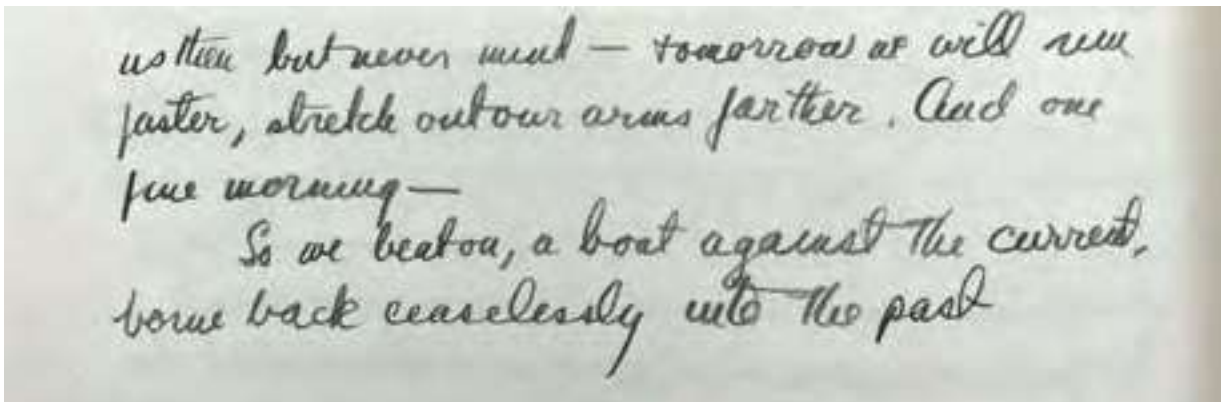 us then but never mind — tomorrow we will run
faster, stretch out our arms farther. And one
fine morning —
So we beat on, a boat against the current,
borne back ceaselessly into the past